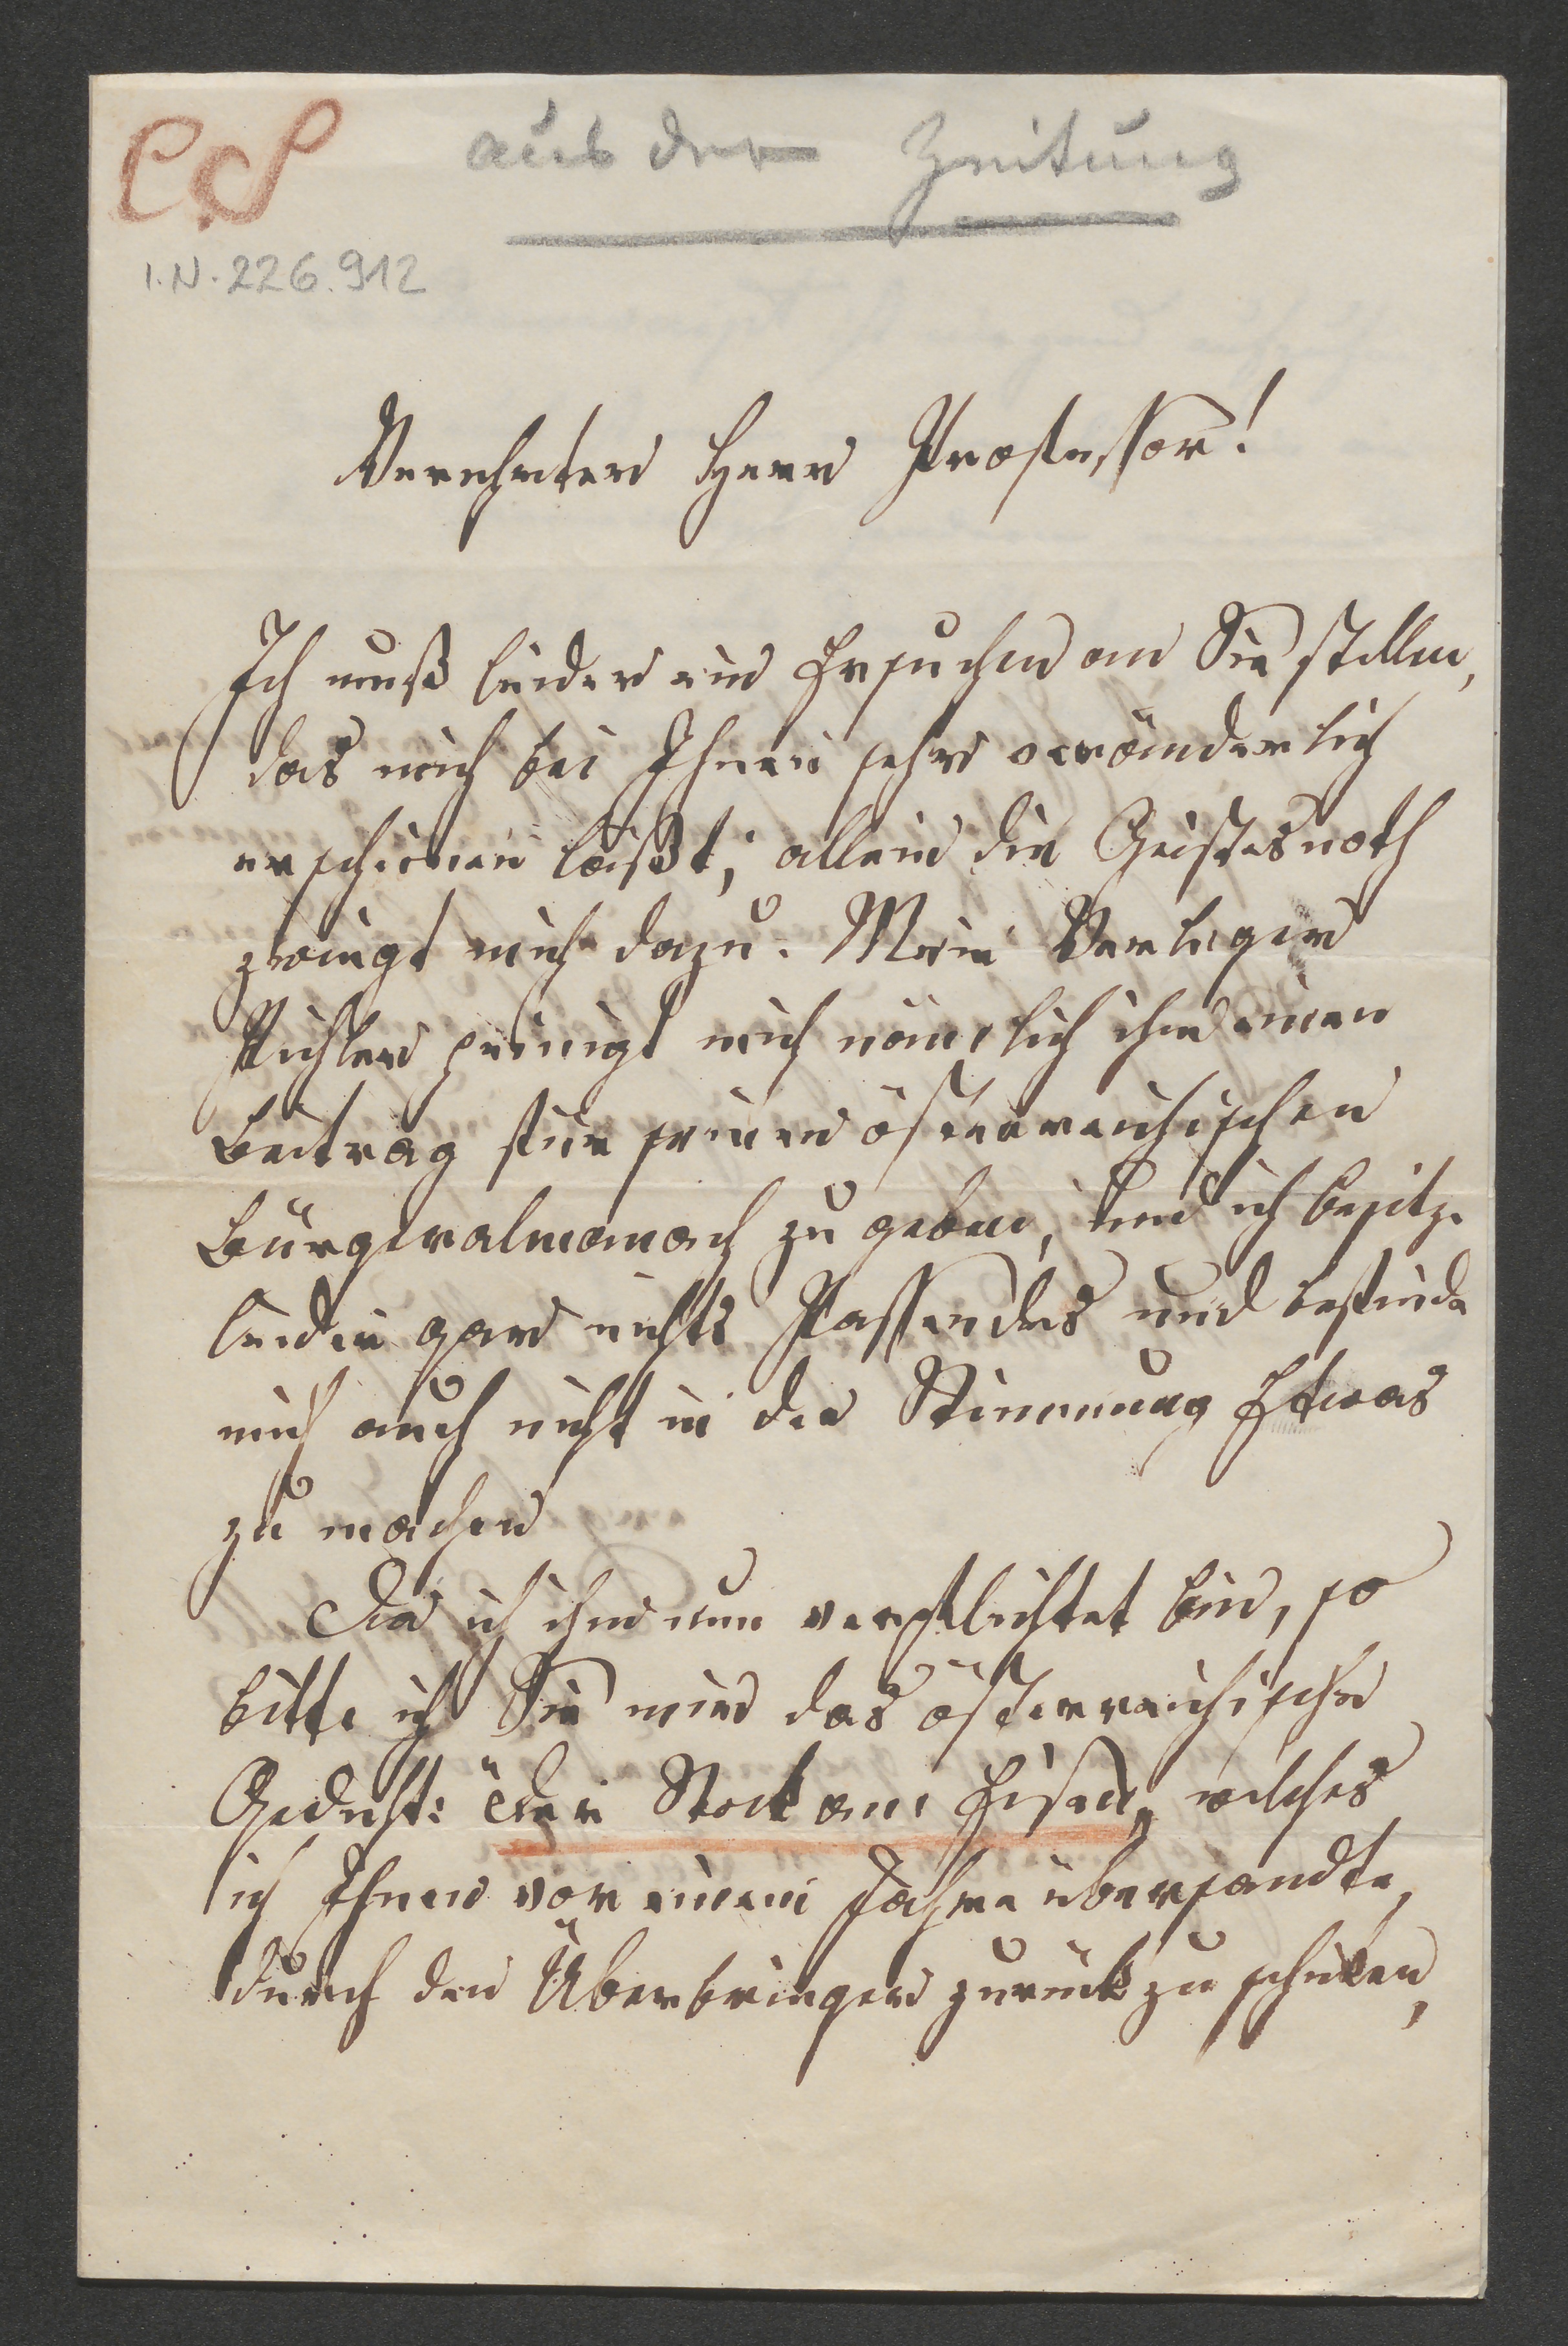 aus der Zeitung
I.N. 226.912
Verehrter Herr Professor!
Ich muß leider ein Ersuchen an Sie stellen,
das mich bei Ihnen sehr veränderlich
erscheinen läßt; allein die Geistesnoth
zwingt mich dazu. Mein Verleger
Pichler peinigt mich nämlich ihm einen
Beitrag für seinen österreichischen
Bürgeralmanach zu geben, und ich besitze
leider gar nichts Passendes und befinde
mich auch nicht in der Stimmung Etwas
zu machen
Da ich ihm nun verpflichtet bin, so
bitte ich Sie mir das österreichische
Gedicht: "Der Stock am Eisen" welches
ich Ihnen vor einem Jahre übersandte,
durch den Überbringer zurück zu schicken,